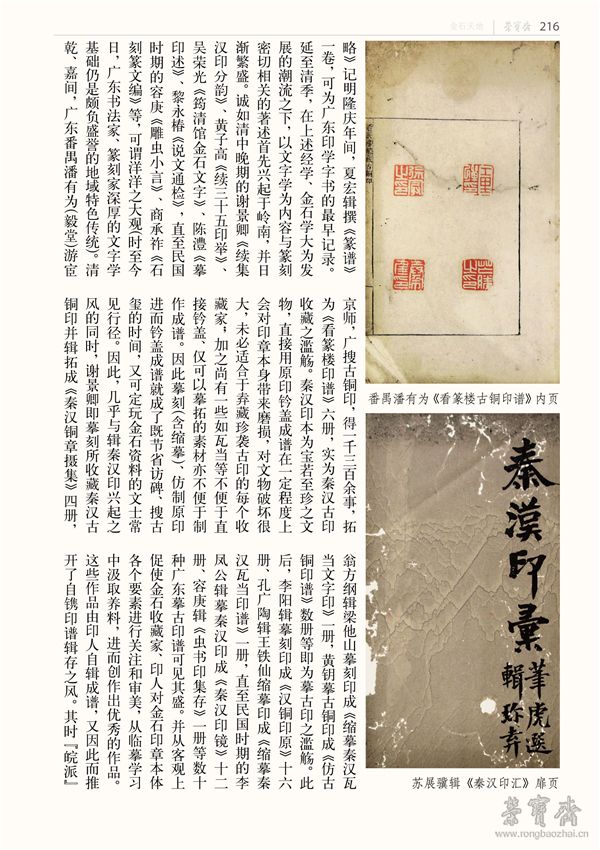 金石天地
荣宝斋
216
略》记明隆庆年间，夏宏辑撰《篆谱》
一卷，可为广东印学字书的最早记录。
延至清季，在上述经学、金石学大为发
展的潮流之下，以文字学为内容与篆刻
密切相关的著述首先兴起于岭南，并日
渐繁盛。诚如清中晚期的谢景卿《续集
汉印分韵》、黄子高《续三十五印举》、
吴荣光《筠清馆金石文字》、陈澧《摹
印述》、黎永椿《说文通检》，直至民国
时期的容庚《雕虫小言》、商承祚《石
刻篆文编》等，可谓洋洋之大观（时至今
日，广东书法家、篆刻家深厚的文字学
基础仍是颇负盛誉的地域特色传统）。清
乾、嘉间，广东番禺潘有为（毅堂）游宦
京师，广搜古铜印，得一千三百余事，拓
为《看篆楼印谱》六册，实为秦汉古印
收藏之滥觞。秦汉印本为宝若至珍之文
物，直接用原印钤盖成谱在一定程度上
会对印章本身带来磨损，对文物破坏很
大，未必适合于弆藏珍袭古印的每个收
藏家；加之尚有一些如瓦当等不便于直
接钤盖、仅可以摹拓的素材亦不便于制
作成谱。因此摹刻（含缩摹）、仿制原印
进而钤盖成谱就成了既节省访碑、搜古
玺的时间，又可定玩金石资料的文士常
见行径。因此，几乎与辑秦汉印兴起之
风的同时，谢景卿即摹刻所收藏秦汉古
铜印并辑拓成《秦汉铜章撮集》四册，
翁方纲辑梁他山摹刻印成《缩摹秦汉瓦
当文字印》一册，黄钥摹古铜印成《仿古
铜印谱》数册等即为摹古印之滥觞。此
后，李阳辑摹刻印成《汉铜印原》十六
册、孔广陶辑王铁仙缩摹印成《缩摹秦
汉瓦当印谱》一册，直至民国时期的李
凤公辑摹秦汉印成《秦汉印镜》十二
册、容庚辑《虫书印集存》一册等数十
种广东摹古印谱可见其盛。并从客观上
促使金石收藏家、印人对金石印章本体
各个要素进行关注和审美，从临摹学习
中汲取养料，进而创作出优秀的作品。
这些作品由印人自辑成谱，又因此而推
开了自镌印谱辑存之风。其时『皖派』
番禺潘有为《看篆楼古铜印谱》内页
秦汉印汇
苏展骥辑《秦汉印汇》扉页
荣宝斋
www.rongbaozhai.cn